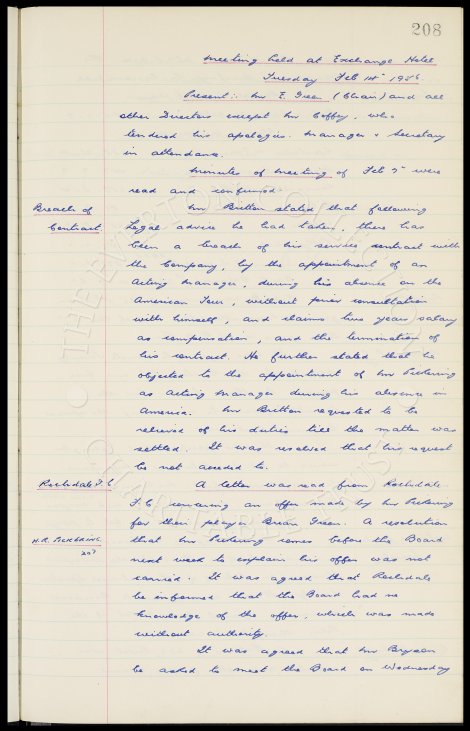 208
Meeting held at Exchange Hotel
Tuesday Feb 14th 1956.
Present:- Mr E. Green (Chair) and all
other Directors except Mr Coffey, who
tendered his apologies. Manager & Secretary
in attendance.
Minutes of meeting of Feb 7th were
read and confirmed.
Breach of
Contract.
Mr Britton stated that following
Legal advice he had taken, there has
been a breach of his service contract with
the Company, by the appointment of an
Acting Manager, during his absence on the
American Tour, without prior consultation
with himself, and claims two years salary
as compensation, and the termination of
his contract. He further stated that he
objected to the appointment of Mr Pickering
as Acting Manager during his absence in
America. Mr Britton requested to be
relieved of his duties till the matter was
settled. It was resolved that his request
be not acceded to.
Rochdale F.C.
A letter was read from Rochdale
F.C. concerning an offer made by Mr Pickering
for their player Brian Green. A resolution
H.R. PICKERING.
that Mr Pickering comes before the Board
207
next week to explain his offer was not
carried. It was agreed that Rochdale
be informed that the Board had no
knowledge of the offer, which was made
without authority.
It was agreed that Mr
be asked to meet the Board on Wednesday
THE EVERTON
CHARITABLE TRUST